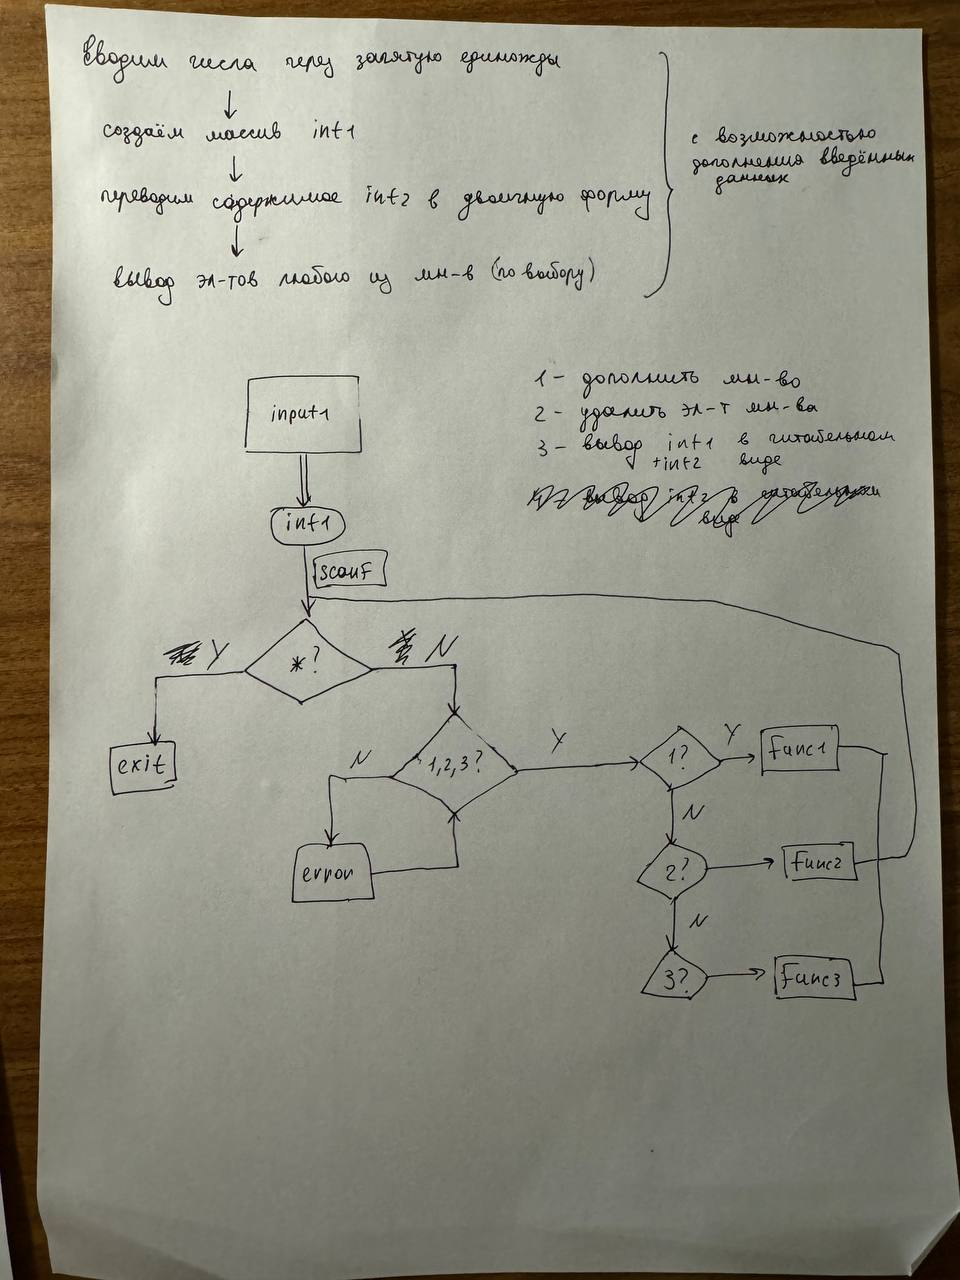 Вводим числа через запятую единожды
создаём массив int1
переводим содержимое int2 в двоичную форму
вывод эл-тов любого из мн-в (по выбору)
с возможностью
дополнения введённых
данных
1 - дополнить мн-во
2 - удалить эл-т мн-ва
3 - вывод int1 в читабельном
+int2 виде
input1
int1
scanf
*?
Y
N
exit
1,2,3?
N
Y
error
1?
Y
func1
N
2?
func2
N
3?
func3